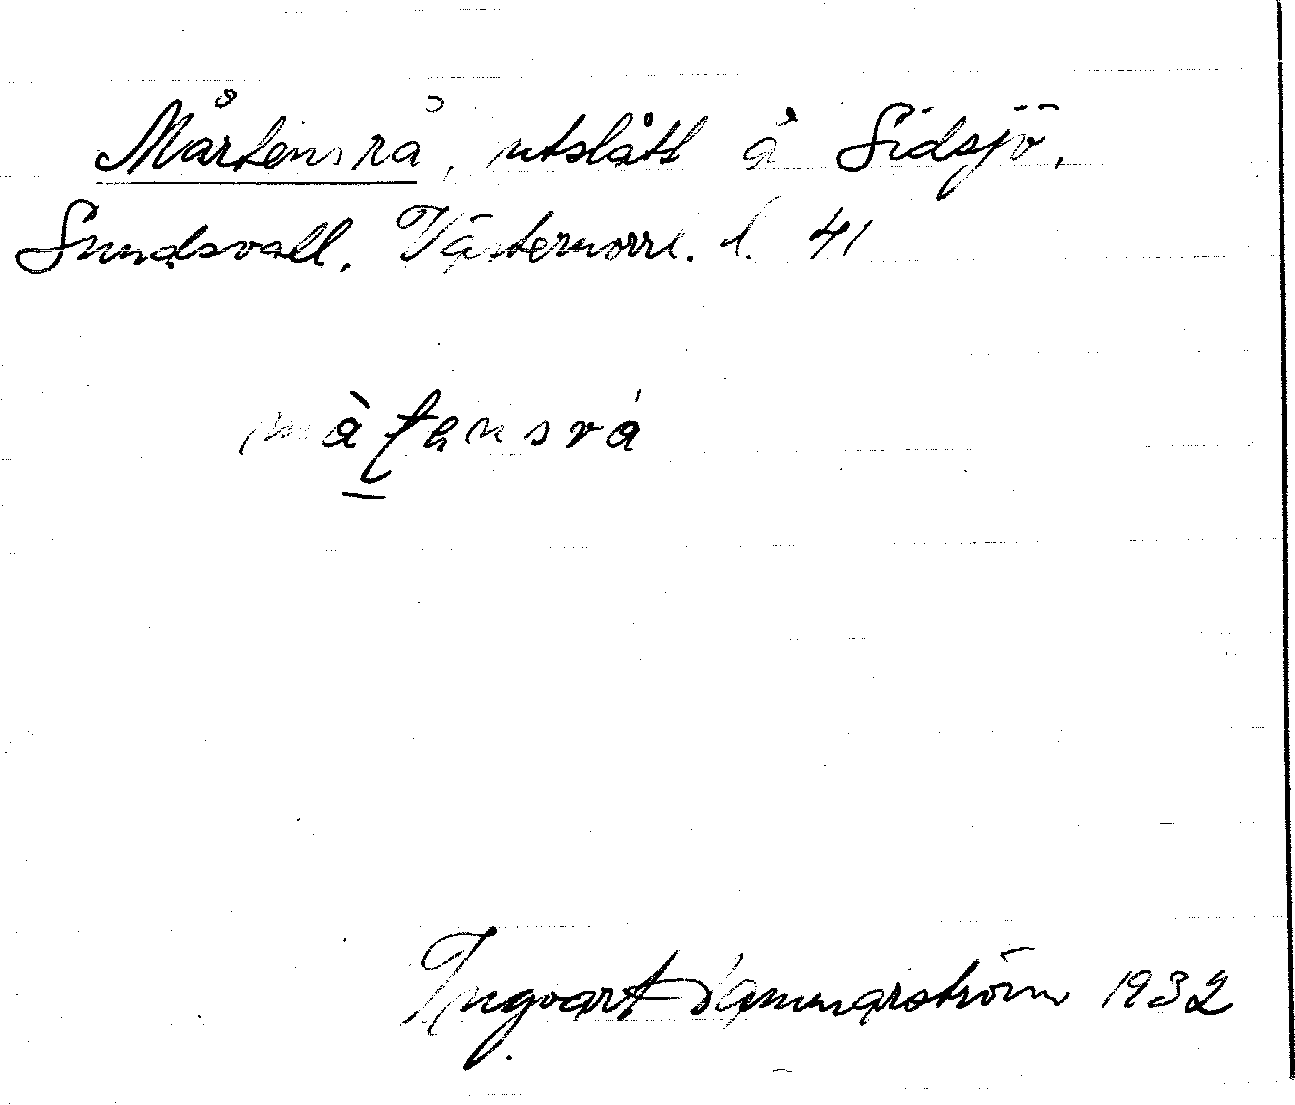 Mårtensrå, utslått å Sidsjö.
Sundsvall. Västernorrl. l. 41
Ingvart Hammarström 1932